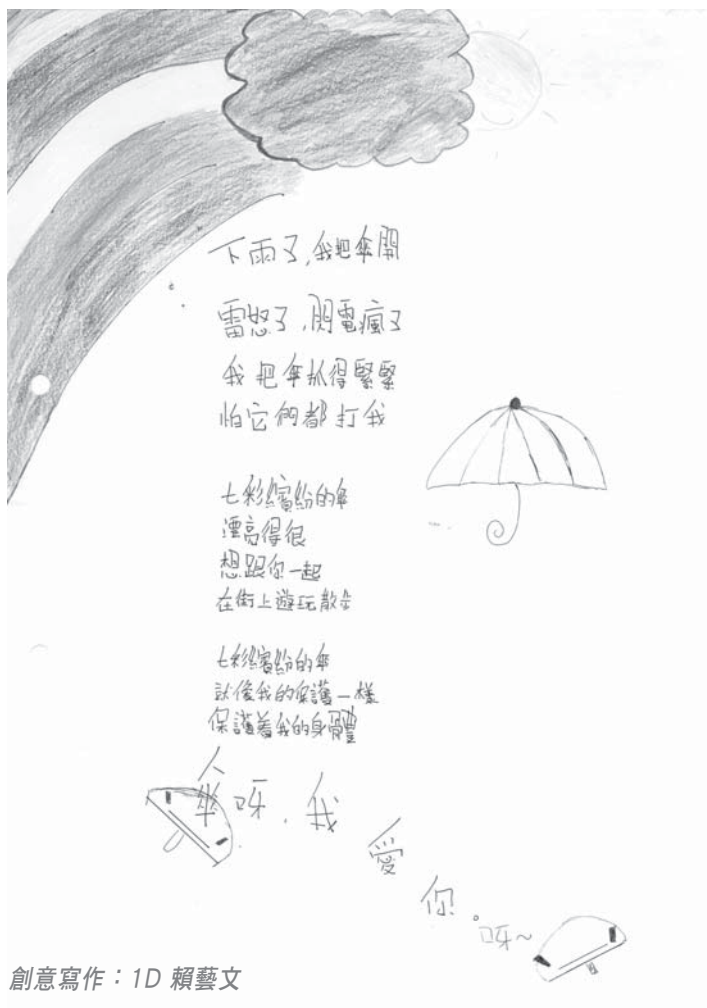 下雨了,我把傘開
雷怒了,閃電瘋了
我把傘抓得緊緊
怕它們都打我
七彩繽紛的傘
漂亮得很
想跟你一起
在街上遊玩散步
七彩繽紛的傘
就像我的保護一樣
保護着我的身體
傘呀,我愛你。呀~
創意寫作:1D 賴藝文